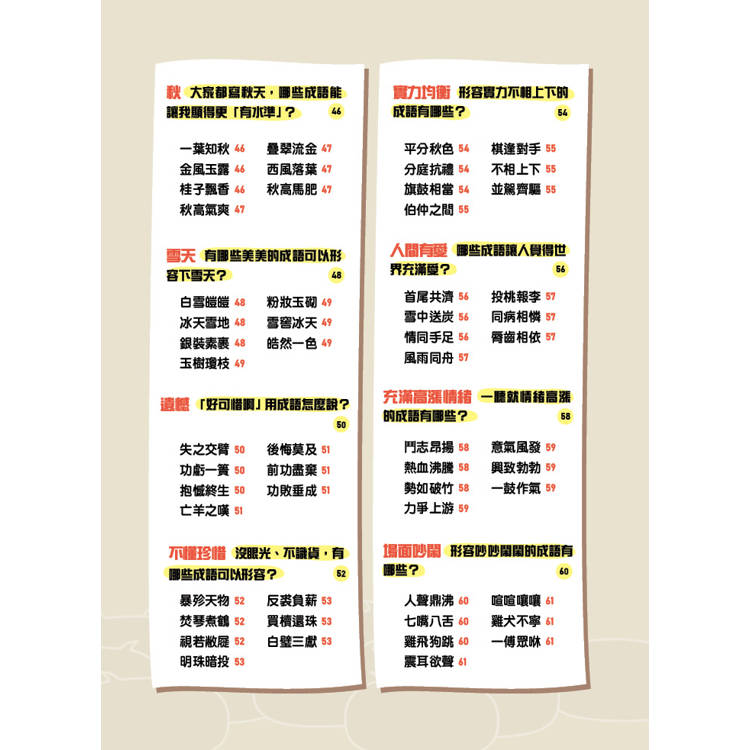 秋 大家都寫秋天，哪些成語能
讓我顯得更「有水準」？ 46
一葉知秋 46 疊翠流金 47
金風玉露 46 西風落葉 47
桂子飄香 46 秋高馬肥 47
秋高氣爽 47
雪天 有哪些美美的成語可以形
容下雪天？ 48
白雪皚皚 48 粉妝玉砌 49
冰天雪地 48 雪窖冰天 49
銀裝素裹 48 皓然一色 49
玉樹瓊枝 49
遺憾 「好可惜啊」用成語怎麼說？
50
失之交臂 50 後悔莫及 51
功虧一簣 50 前功盡棄 51
抱憾終生 50 功敗垂成 51
亡羊之嘆 51
不懂珍惜 沒眼光、不識貨，有
哪些成語可以形容？ 52
暴殄天物 52 反裘負薪 53
焚琴煮鶴 52 買櫝還珠 53
視若敝屣 52 白璧三獻 53
明珠暗投 53
實力均衡 形容實力不相上下的
成語有哪些？ 54
平分秋色 54 棋逢對手 55
分庭抗禮 54 不相上下 55
旗鼓相當 54 並駕齊驅 55
伯仲之間 55
人間有愛 哪些成語讓人覺得世
界充滿愛？ 56
首尾共濟 56 投桃報李 57
雪中送炭 56 同病相憐 57
情同手足 56 脣齒相依 57
風雨同舟 57
充滿高漲情緒 一聽就情緒高漲
的成語有哪些？ 58
鬥志昂揚 58 意氣風發 59
熱血沸騰 58 興致勃勃 59
勢如破竹 58 一鼓作氣 59
力爭上游 59
場面吵鬧 形容吵吵鬧鬧的成語有
哪些？ 60
人聲鼎沸 60 喧喧嚷嚷 61
七嘴八舌 60 雞犬不寧 61
雞飛狗跳 60 一傅眾咻 61
震耳欲聾 61